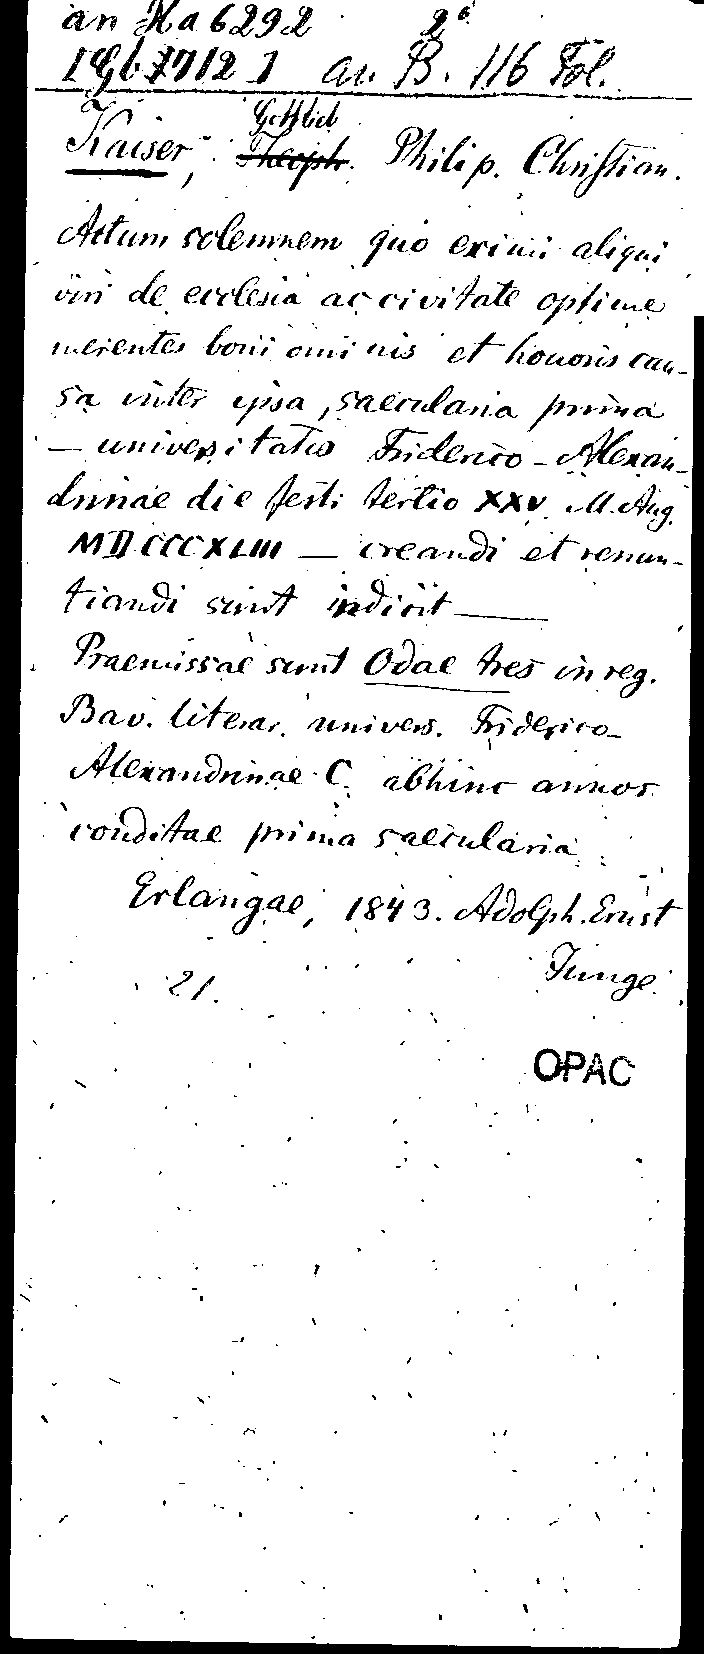 an Ha 6292 2°
an B. 116 Fol.
Gottlieb
Kaiser, Theoph. Philip. Christian.
Actum solemnem quo eximii aliqui
viri de ecclesia ac civitate optime
merentes boni ominis et honoris cau-
sa inter ipsa saecularia prima
— universitatis Friderico-Alexan-
drinae die festi tertio XXV M. Aug.
MDCCCXLIII — creandi et renun-
tiandi sunt indicit —
Praemissae sunt Odae tres in reg.
Bav. literar. univers. Friderico-
Alexandrinae C. abhinc annos
conditae prima saecularia
Erlangae, 1843. Adolph. Ernst
Junge.
21.
OPAC